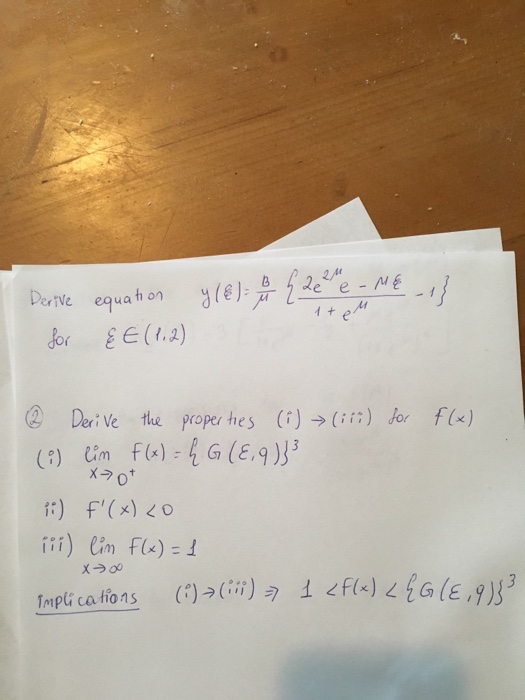 Derive equation y(ξ) = B/μ { (2e^{2μ} e - μξ)/(1 + e^μ) - 1 }
for ξ ∈ (1,2)
② Derive the properties (i) → (iii) for f(x)
(i) lim x→0⁺ f(x) = {G(ε,q)}³
ii) f'(x) < 0
iii) lim x→∞ f(x) = 1
Implications (i) → (iii) ⇒ 1 < f(x) < {G(ε,q)}³